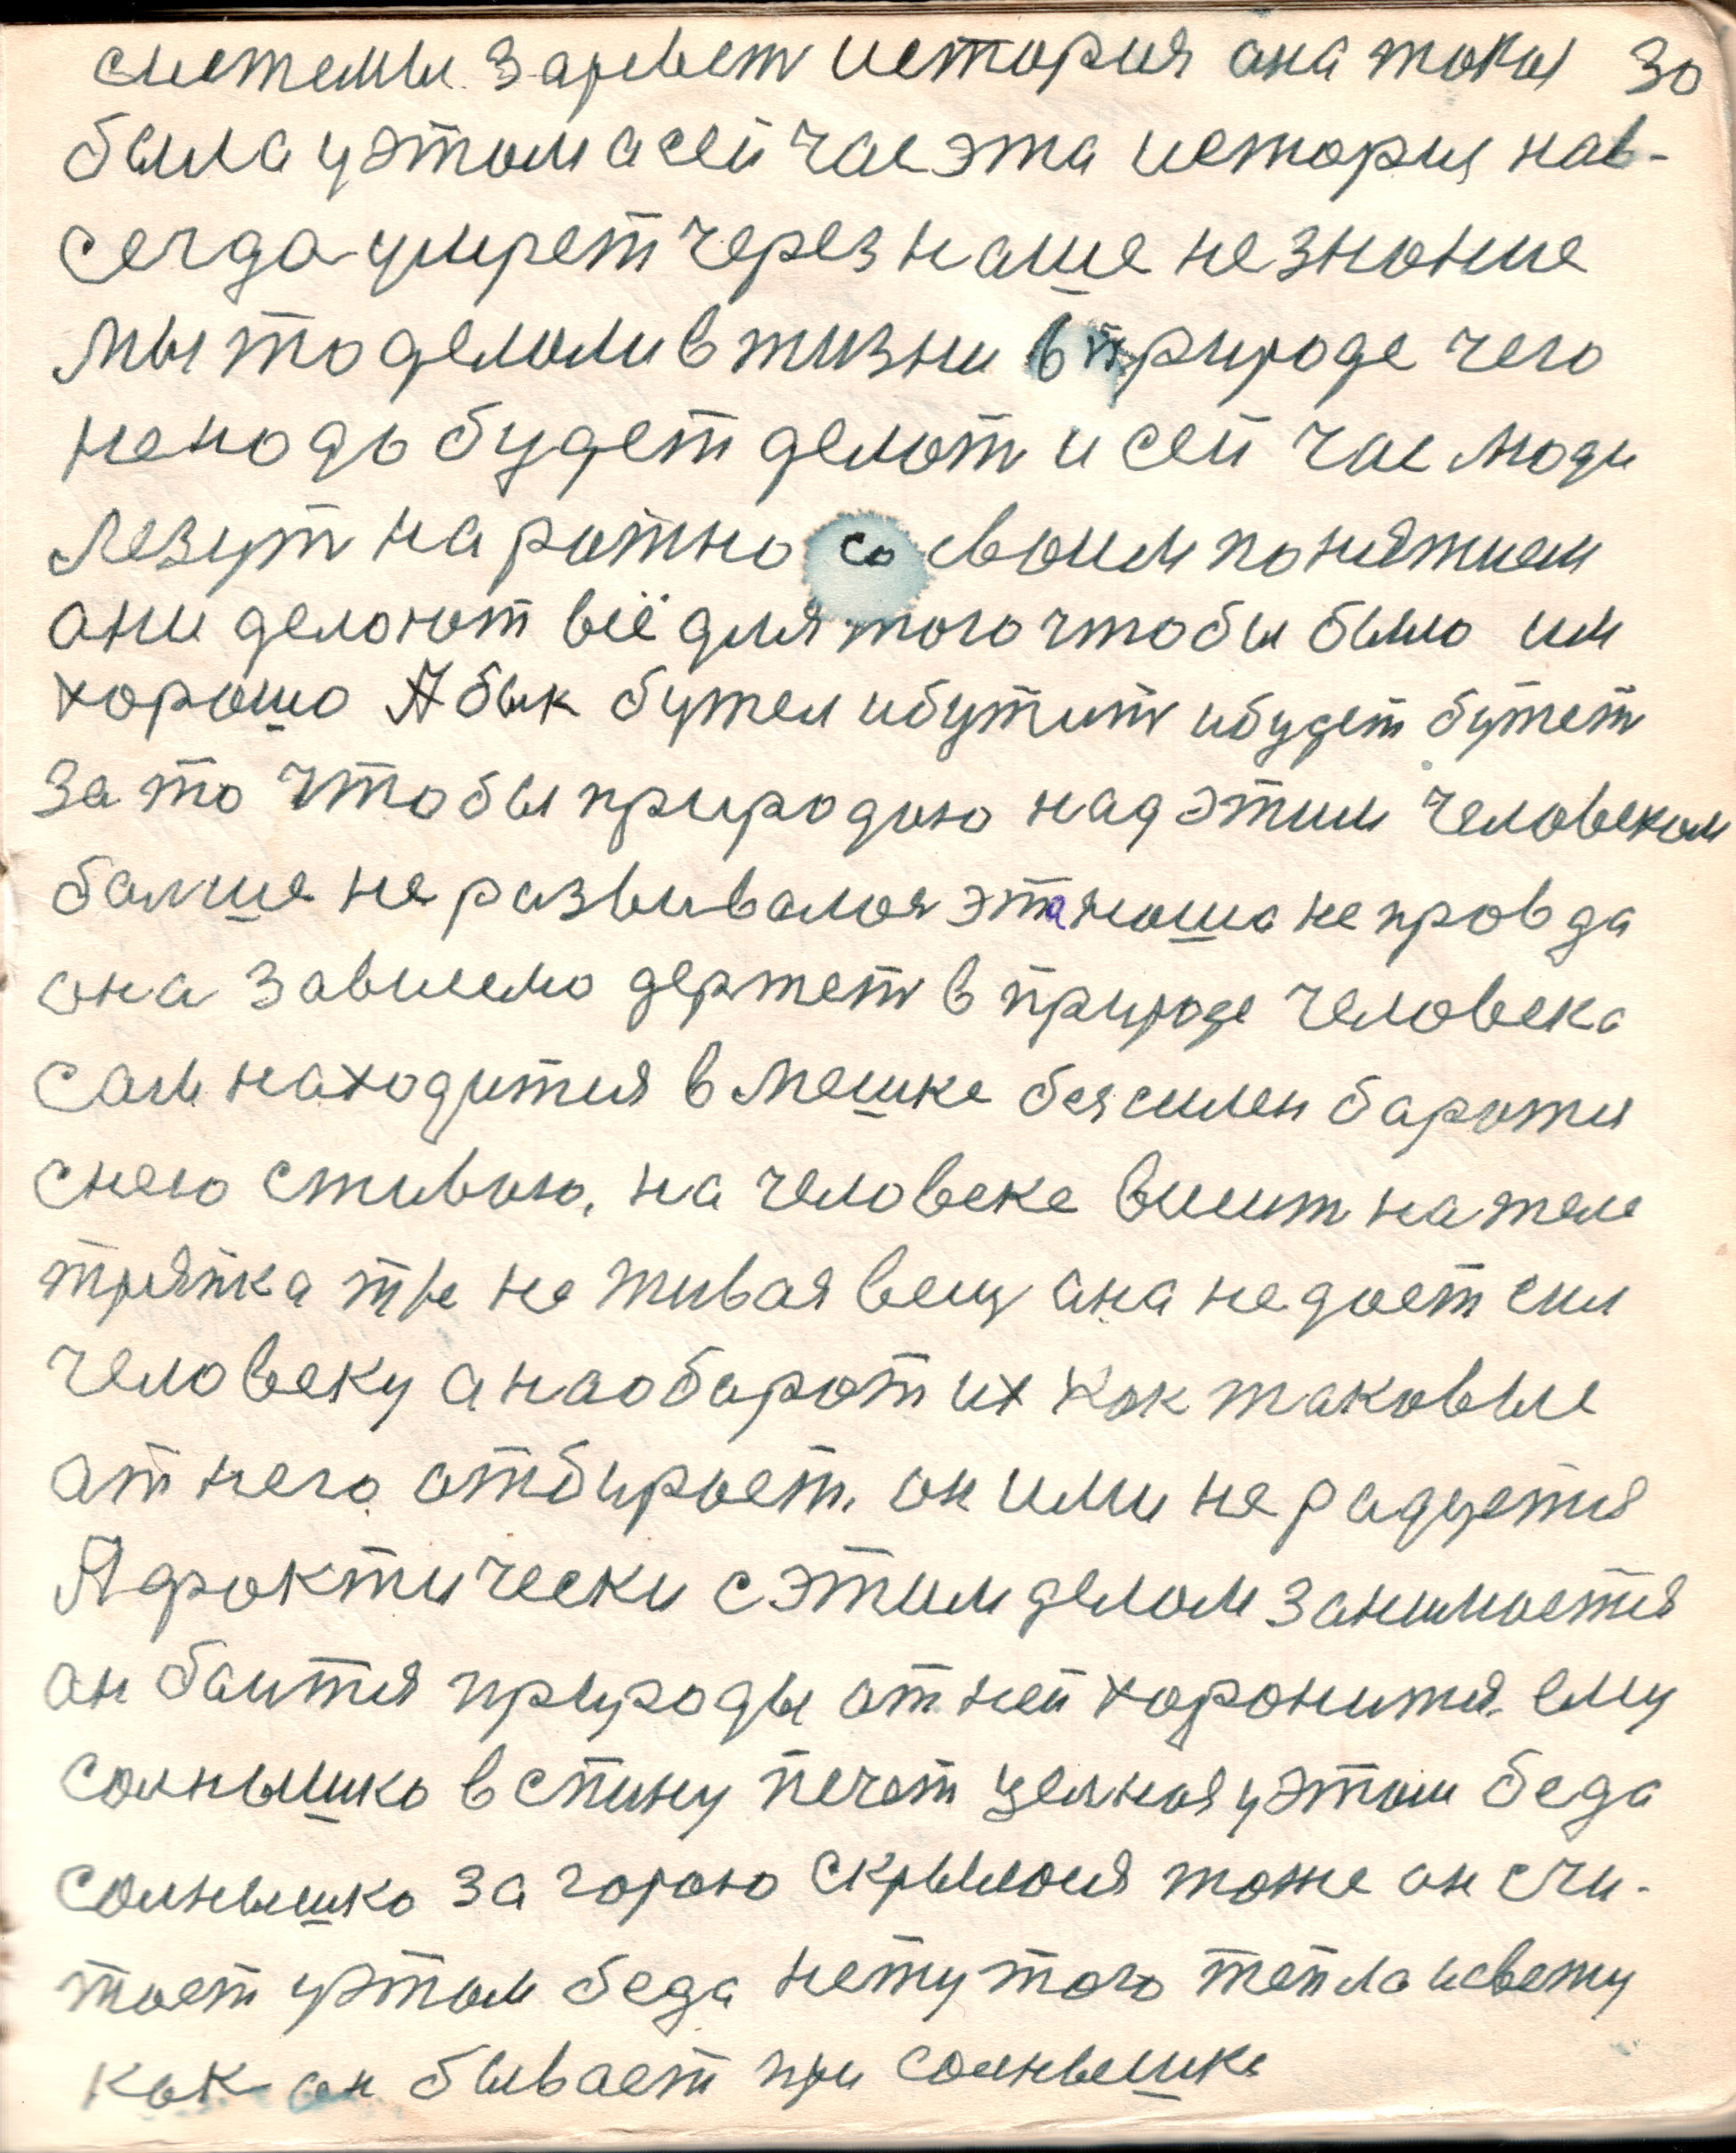 системы зарвет история она токи 30
была у этом а сей час эта история нав-
сегда умрет через наше незнание
мы то делали в жизни в природе чего
ненада будет делат и сей час люди
лезут на ратно со своим понятием
ани делоют всё для того чтобы было им
хорошо А бык бутел и бутит и будет бутет
за то чтобы природаю над этим человеком
балше не развивалоя эта наша неправда
она зависемо держет в природе человека
сам находится в мешке беясилен баротися
снею стивою, на человеке висит на теле
тряпка тре не живая вещ ана не дает сил
человеку а наобарот их как таковые
ат него отбирает. он ими не радуется
А фактически с этим делом занимается
он баится природы от ней хоронится. ему
солнышко в спину печет целная у этом беда
солнышко за горою скрылося тоже он счи-
тает у этом беда нету того тепла и свету
как он бывает при солнышке